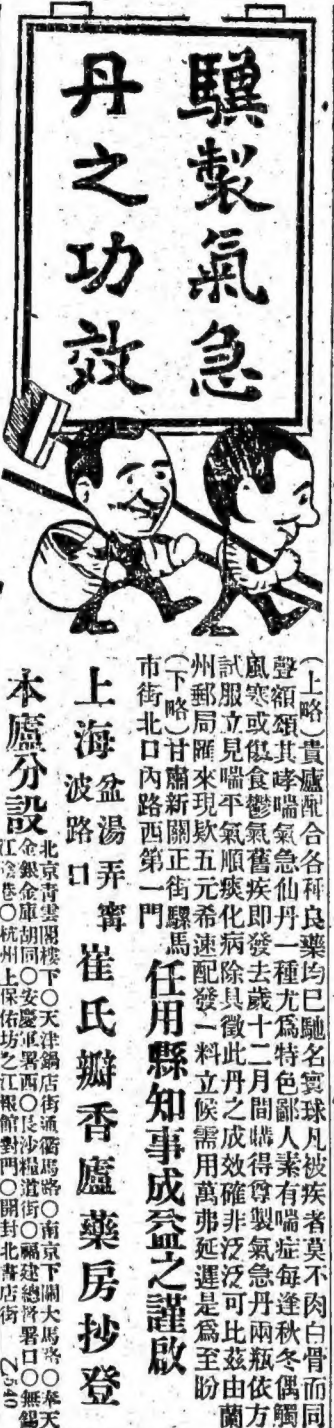 驥製氣急
丹之功效
(上略)貴廬配合各種良藥均已馳名寰球凡被疾者莫不肉白骨而同
聲額頌其哮喘氣急仙丹一種尤爲特色鄙人素有喘症每逢秋冬偶觸
風寒或傷食鬱氣舊疾即發去歲十二月間購得尊製氣急丹兩瓶依方
試服立見喘平氣順痰化病除具徵此丹之成效確非泛泛可比茲由蘭
州郵局匯來現欵五元希速配發一料立候需用萬弗延遲是爲至盼
(下略)甘肅新關正街騾馬
市街北口內路西第一門
任用縣知事成益之謹啟
上海盆湯弄寗
波路口
崔氏瓣香廬藥房抄登
本廬分設
北京靑雲閣樓下〇天津鍋店街通衢馬路〇南京下關大馬路〇奉天
金銀金庫胡同〇安慶軍署西〇長沙糧道街〇福建總督署口〇無錫
江陰巷〇杭州上保佑坊之江報館對門〇開封北書店街
Z540